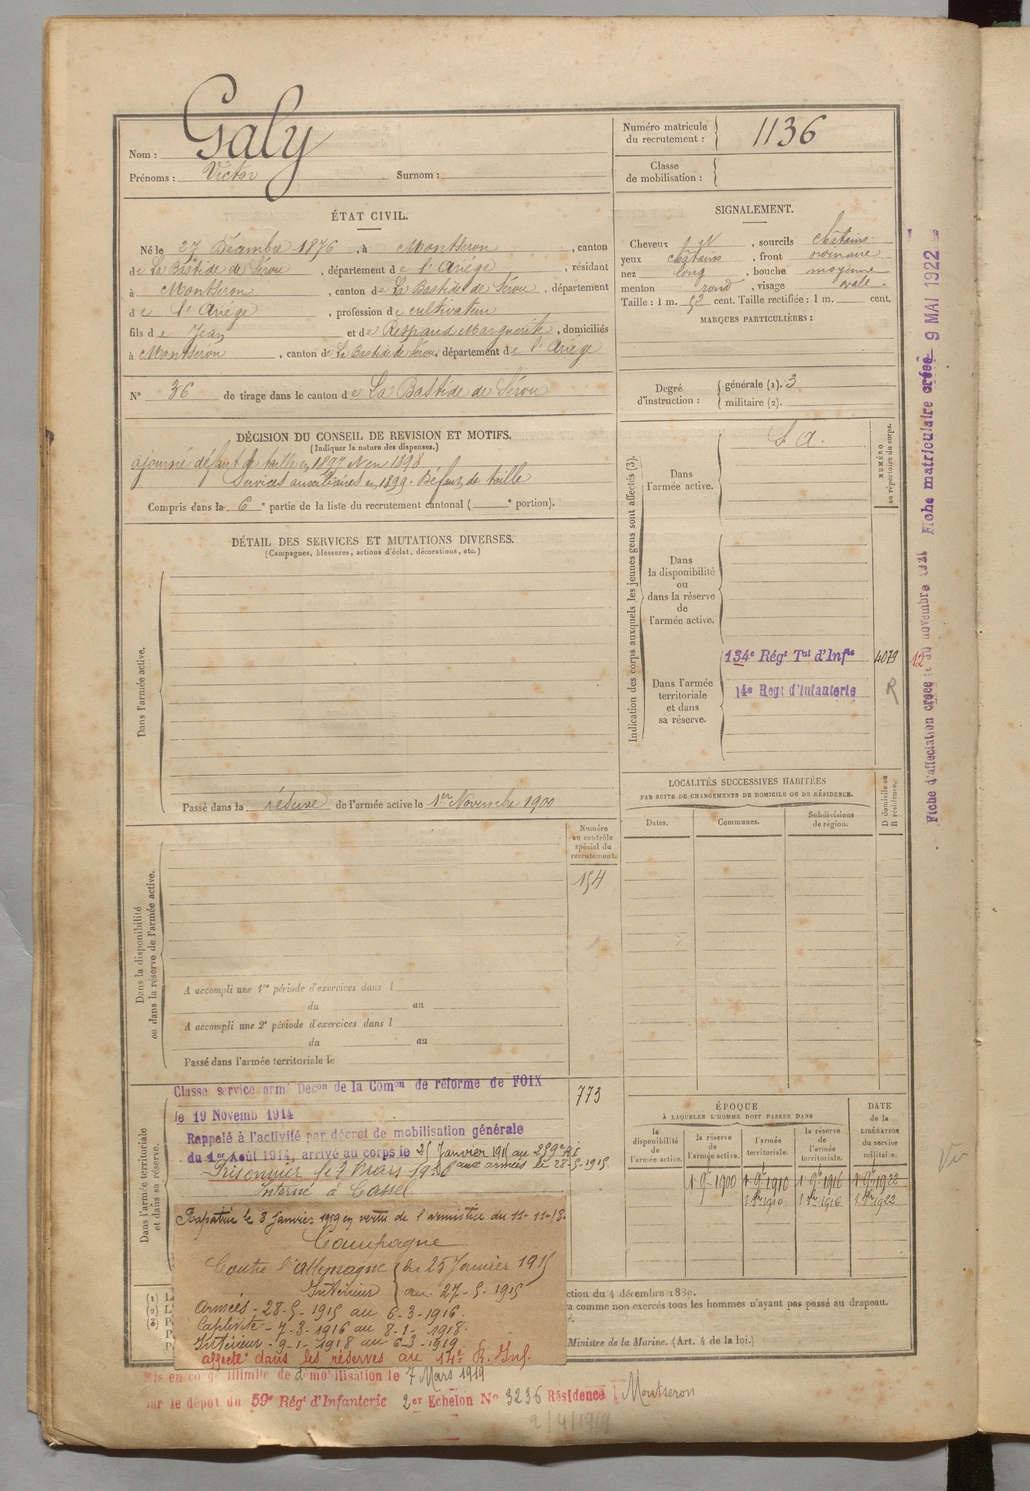 Nom : Galy
Prénoms : Victor Surnom :
Numéro matricule
du recrutement : 1136
Classe
de mobilisation :
ÉTAT CIVIL.
Né le 27 Décembre 1876, à Montseron, canton
de La Bastide de Sérou, département de l'Ariège, résidant
à Montseron, canton de La Bastide de Sérou, département
de l'Ariège, profession de cultivateur
fils de Jean et de Respaud Marguerite, domiciliés
à Montseron, canton de La Bastide de Sérou, département de l'Ariège
N° 36 de tirage dans le canton de La Bastide de Sérou
SIGNALEMENT.
Cheveux N, sourcils châtains
yeux châtains, front ordinaire
nez long, bouche moyenne
menton rond, visage ovale
Taille : 1 m. 52 cent. Taille rectifiée : 1 m. cent.
MARQUES PARTICULIÈRES :
Degré
d'instruction :
générale (1). 3
militaire (2).
DÉCISION DU CONSEIL DE REVISION ET MOTIFS.
(Indiquer la nature des dispenses.)
ajourné défaut de taille en 1897 et en 1898
Services auxiliaires en 1899. Défaut de taille
Compris dans la 6e partie de la liste du recrutement cantonal ( e portion).
DÉTAIL DES SERVICES ET MUTATIONS DIVERSES.
(Campagnes, blessures, actions d'éclat, décorations, etc.)
Dans l'armée active.
Passé dans la réserve de l'armée active le 1er Novembre 1900
Indication des corps auxquels les jeunes gens sont affectés (3).
Dans
l'armée active.
S A.
NUMÉRO
au répertoire du corps.
Dans
la disponibilité
ou
dans la réserve
de
l'armée active.
Dans l'armée
territoriale
et dans
sa réserve.
134e Régt Tal d'Infie 4079 12
14e Regt d'Infanterie R
Fiche d'affectation créée le novembre
Fiche matriculaire créée 9 MAI 1922
LOCALITÉS SUCCESSIVES HABITÉES
PAR SUITE DE CHANGEMENTS DE DOMICILE OU DE RÉSIDENCE.
Dates.
Communes.
Subdivisions
de région.
D domicile ou
R résidence.
Numéro
au contrôle
spécial du
recrutement.
154
Dans la disponibilité
ou dans la réserve de l'armée active.
A accompli une 1re période d'exercices dans l
du au
A accompli une 2e période d'exercices dans l
du au
Passé dans l'armée territoriale le
Dans l'armée territoriale
et dans sa réserve.
Classe service armé Decon de la Comon de réforme de FOIX
773
le 19 Novemb 1914
Rappelé à l'activité par décret de mobilisation générale
du 1er Août 1914, arrivé au corps le 25 Janvier 1915 au 259e RI
aux armées le 28-5-1915
Prisonnier le 7 Mars 1916
Interné à Cassel
Rapatrié le 8 Janvier 1919 en vertu de l'armistice du 11-11-18.
Campagne
Contre l'Allemagne du 25 Janvier 1915
Intérieur au 27-5-1915
Armées - 28-5-1915 au 6-3-1916.
Captivité - 7-3-1916 au 8-1-1918.
Intérieur - 9-1-1918 au 6-3-1919
affecté dans les réserves au 14e R. Inf.
Mis en congé illimité de démobilisation le 7 Mars 1919
par le dépôt du 59e Régt d'Infanterie 2er Echelon No 3236 Résidence Montseron
2/4/1919
ÉPOQUE
À LAQUELLE L'HOMME DOIT PASSER DANS
la
disponibilité
de
l'armée active.
la réserve
de
l'armée active.
l'armée
territoriale.
la réserve
de l'armée
territoriale.
DATE
de la
LIBÉRATION
du service
militaire.
1 9bre 1900 1 9bre 1910 1 9bre 1916 1 9bre 1922
1 8bre 1910 1 8bre 1916 1 8bre 1922
ction du 4 décembre 1889.
ra comme non exercés tous les hommes n'ayant pas passé au drapeau.
Ministre de la Marine. (Art. 4 de la loi.)